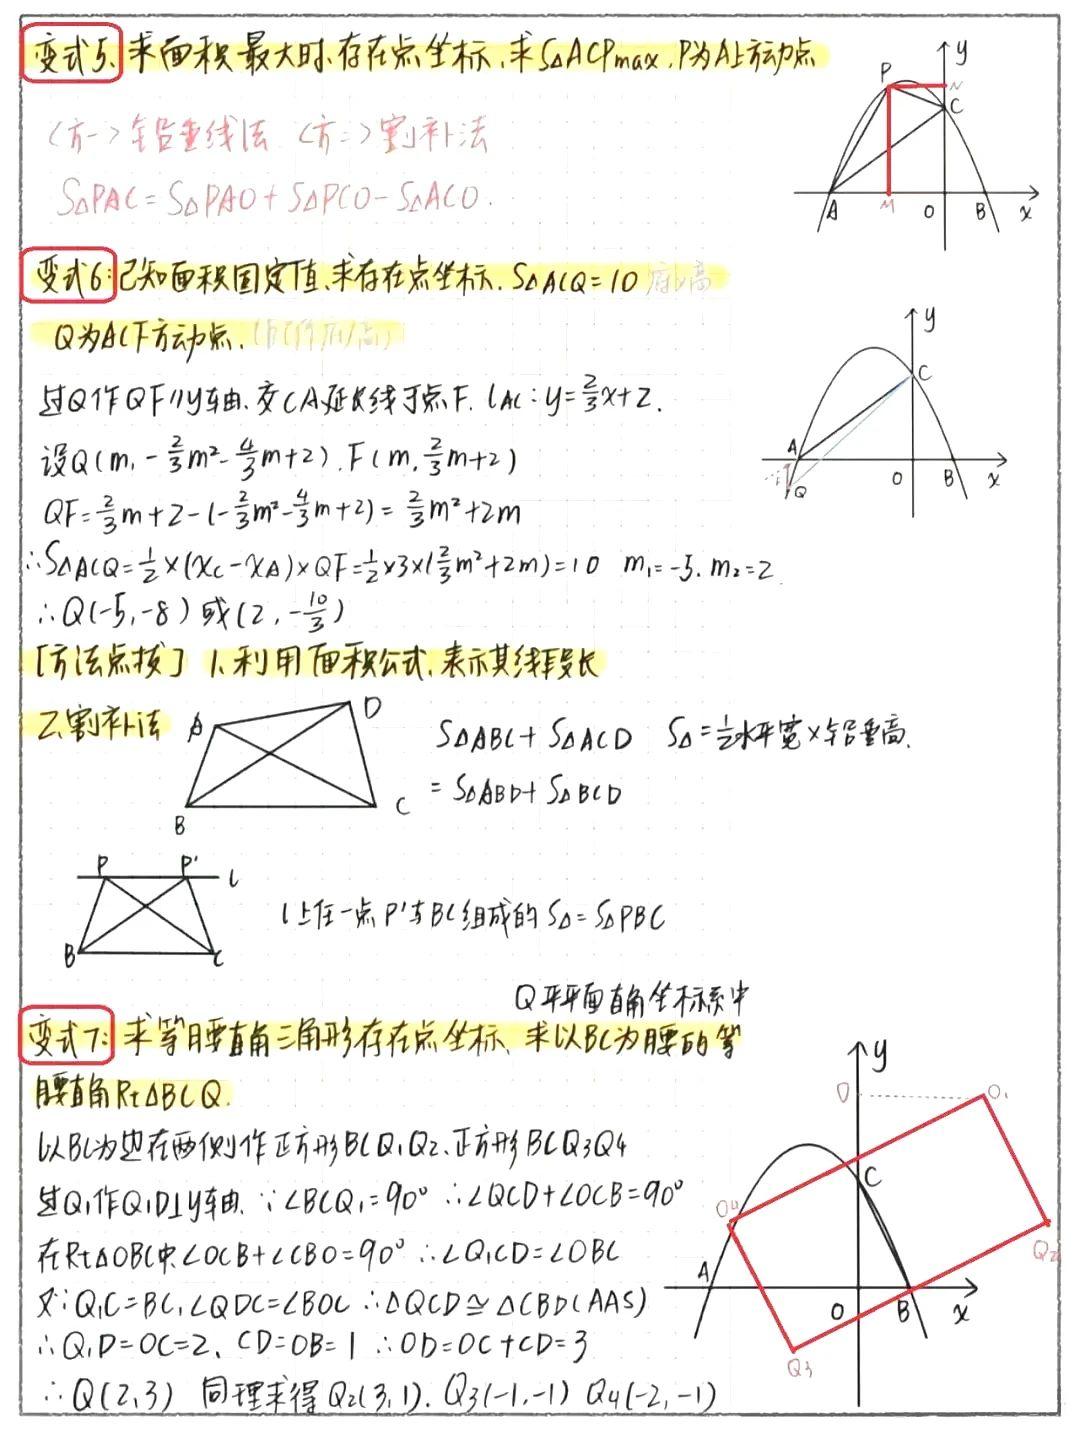 变式5: 求面积最大时,存在点坐标,求S△ACPmax,P为A上方动点
<方一>铅垂线法 <方二>割补法
S△PAC=S△PAO+S△PCO-S△ACO.
y
P
N
C
A
M
O
B
x
变式6: 已知面积固定值,求存在点坐标. S△ACQ=10
Q为AC下方动点.
过Q作QF∥y轴,交CA延长线于点F. lAC: y=2/3x+2.
设Q(m, -2/3m²-4/3m+2). F(m, 2/3m+2)
QF=2/3m+2-(-2/3m²-4/3m+2)=2/3m²+2m
∴S△ACQ=1/2×(xC-xA)×QF=1/2×3×(2/3m²+2m)=10 m₁=-5, m₂=2
∴Q(-5,-8)或(2,-10/3)
y
C
A
Q
O
B
x
[方法点拨] 1.利用面积公式,表示其线段长
2.割补法
A
D
B
C
S△ABC+S△ACD S△=1/2水平宽×铅垂高.
=S△ABD+S△BCD
P
P'
l
B
C
l上任一点P'与BC组成的S△=S△PBC
Q平平面直角坐标系中
变式7: 求等腰直角三角形存在点坐标, 求以BC为腰的等
腰直角Rt△BCQ.
以BC为边在两侧作正方形BCQ₁Q₂,正方形BCQ₃Q₄
过Q₁作Q₁D⊥y轴. ∵∠BCQ₁=90° ∴∠QCD+∠OCB=90°
在Rt△OBC中∠OCB+∠CBO=90° ∴∠Q₁CD=∠OBC
又∵Q₁C=BC,∠QDC=∠BOC ∴△QCD≌△CBD(AAS)
∴Q₁D=OC=2, CD=OB=1 ∴OD=OC+CD=3
∴Q(2,3) 同理求得Q₂(3,1). Q₃(-1,-1) Q₄(-2,-1)
y
D
Q₁
C
Q₄
Q₂
A
O
B
x
Q₃